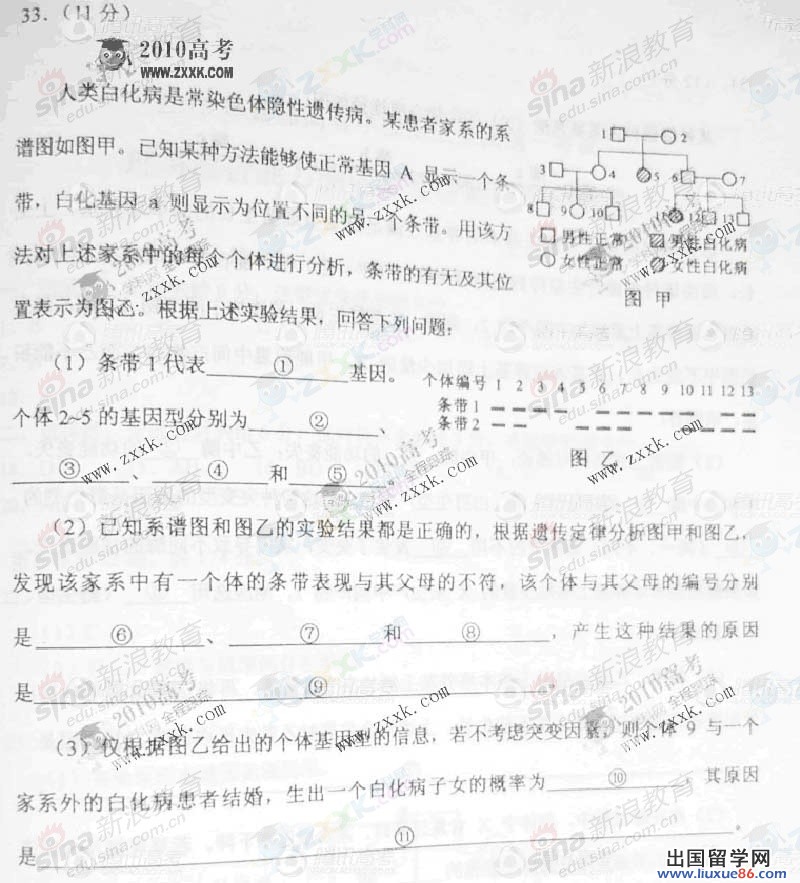 33.（11 分）
2010高考
www.zxxk.com
人类白化病是常染色体隐性遗传病。某患者家系的系
谱图如图甲。已知某种方法能够使正常基因 A 显示一个条
带，白化基因 a 则显示为位置不同的另一个条带。用该方
法对上述家系中的每个个体进行分析，条带的有无及其位
置表示为图乙。根据上述实验结果，回答下列问题：
1 2
3 4 5 6 7
8 9 10 12 13
男性正常 男性白化病
女性正常 女性白化病
图 甲
（1）条带 1 代表 ① 基因。
个体 2~5 的基因型分别为 ② 、
③ 、 ④ 和 ⑤
个体编号 1 2 3 4 5 6 7 8 9 10 11 12 13
条带 1
条带 2
图 乙
（2）已知系谱图和图乙的实验结果都是正确的，根据遗传定律分析图甲和图乙，
发现该家系中有一个体的条带表现与其父母的不符，该个体与其父母的编号分别
是 ⑥ 、 ⑦ 和 ⑧ ，产生这种结果的原因
是 ⑨ 。
（3）仅根据图乙给出的个体基因型的信息，若不考虑突变因素，则个体 9 与一个
家系外的白化病患者结婚，生出一个白化病子女的概率为 ⑩ ，其原因
是 ⑪ 。
出国留学网
www.liuxue86.com